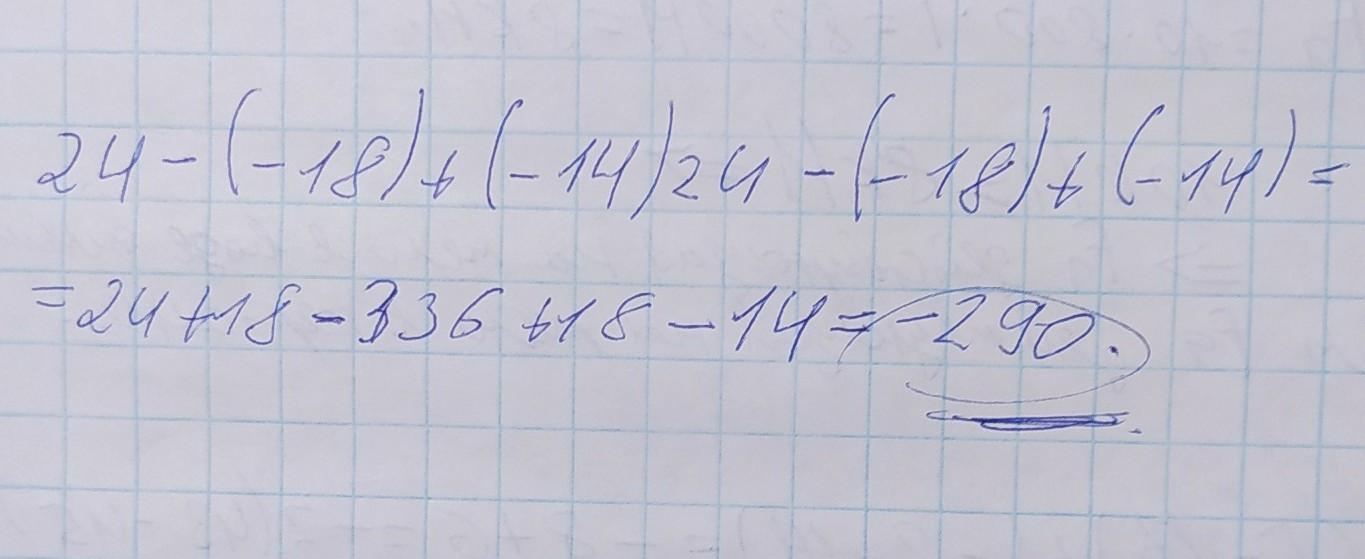 24-(-18)+(-14)24-(-18)+(-14)=
=24+18-336+18-14=-290.